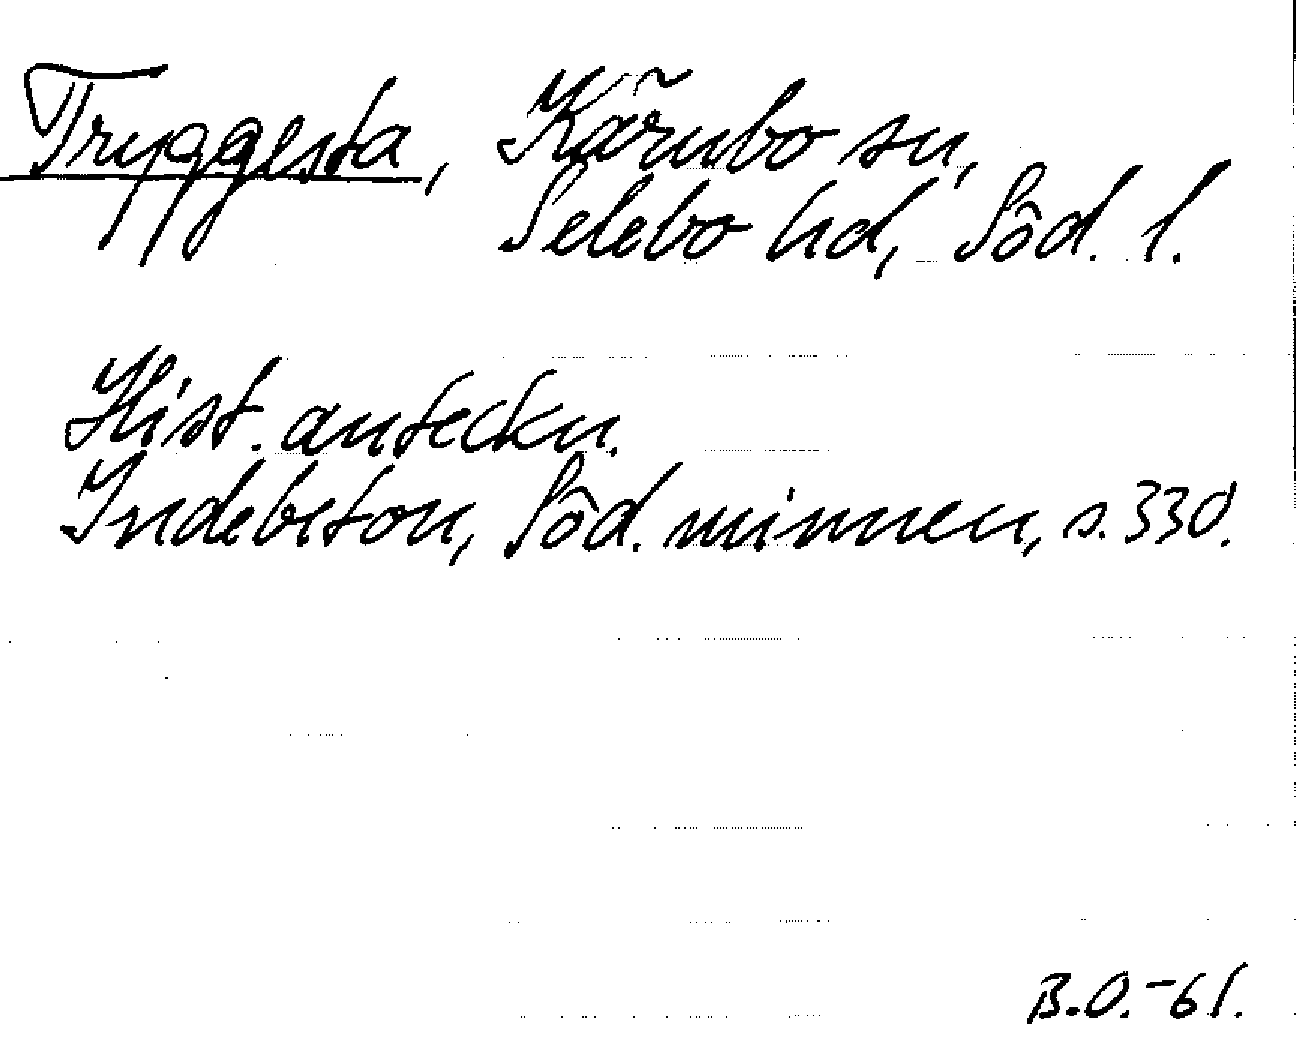 Tryggesta, Kärnbo sn,
Selebo hd, Söd. l.
Hist. anteckn.
Indebetou, Söd. minnen, s. 330.
B.O.-61.